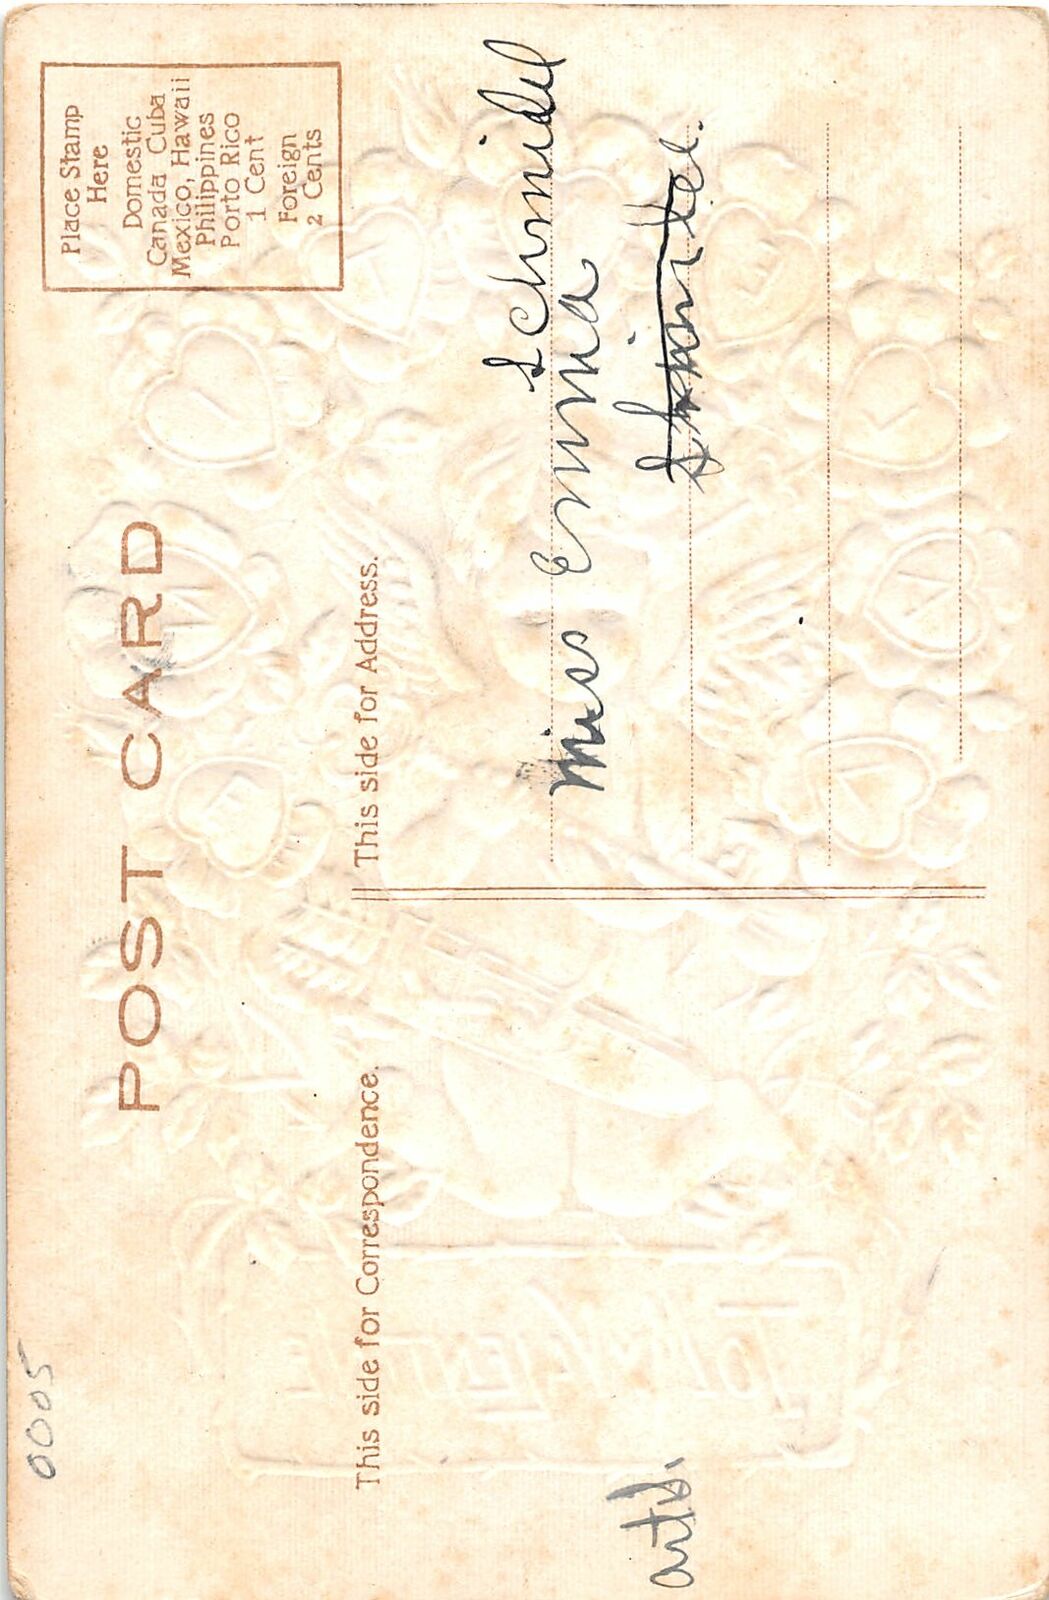 0005
POST CARD
Place Stamp
Here
Domestic
Canada Cuba
Mexico, Hawaii
Philippines
Porto Rico
1 Cent
Foreign
2 Cents
This side for Correspondence.
This side for Address.
Schmidel
Miss Emma
TO MY VALENTINE